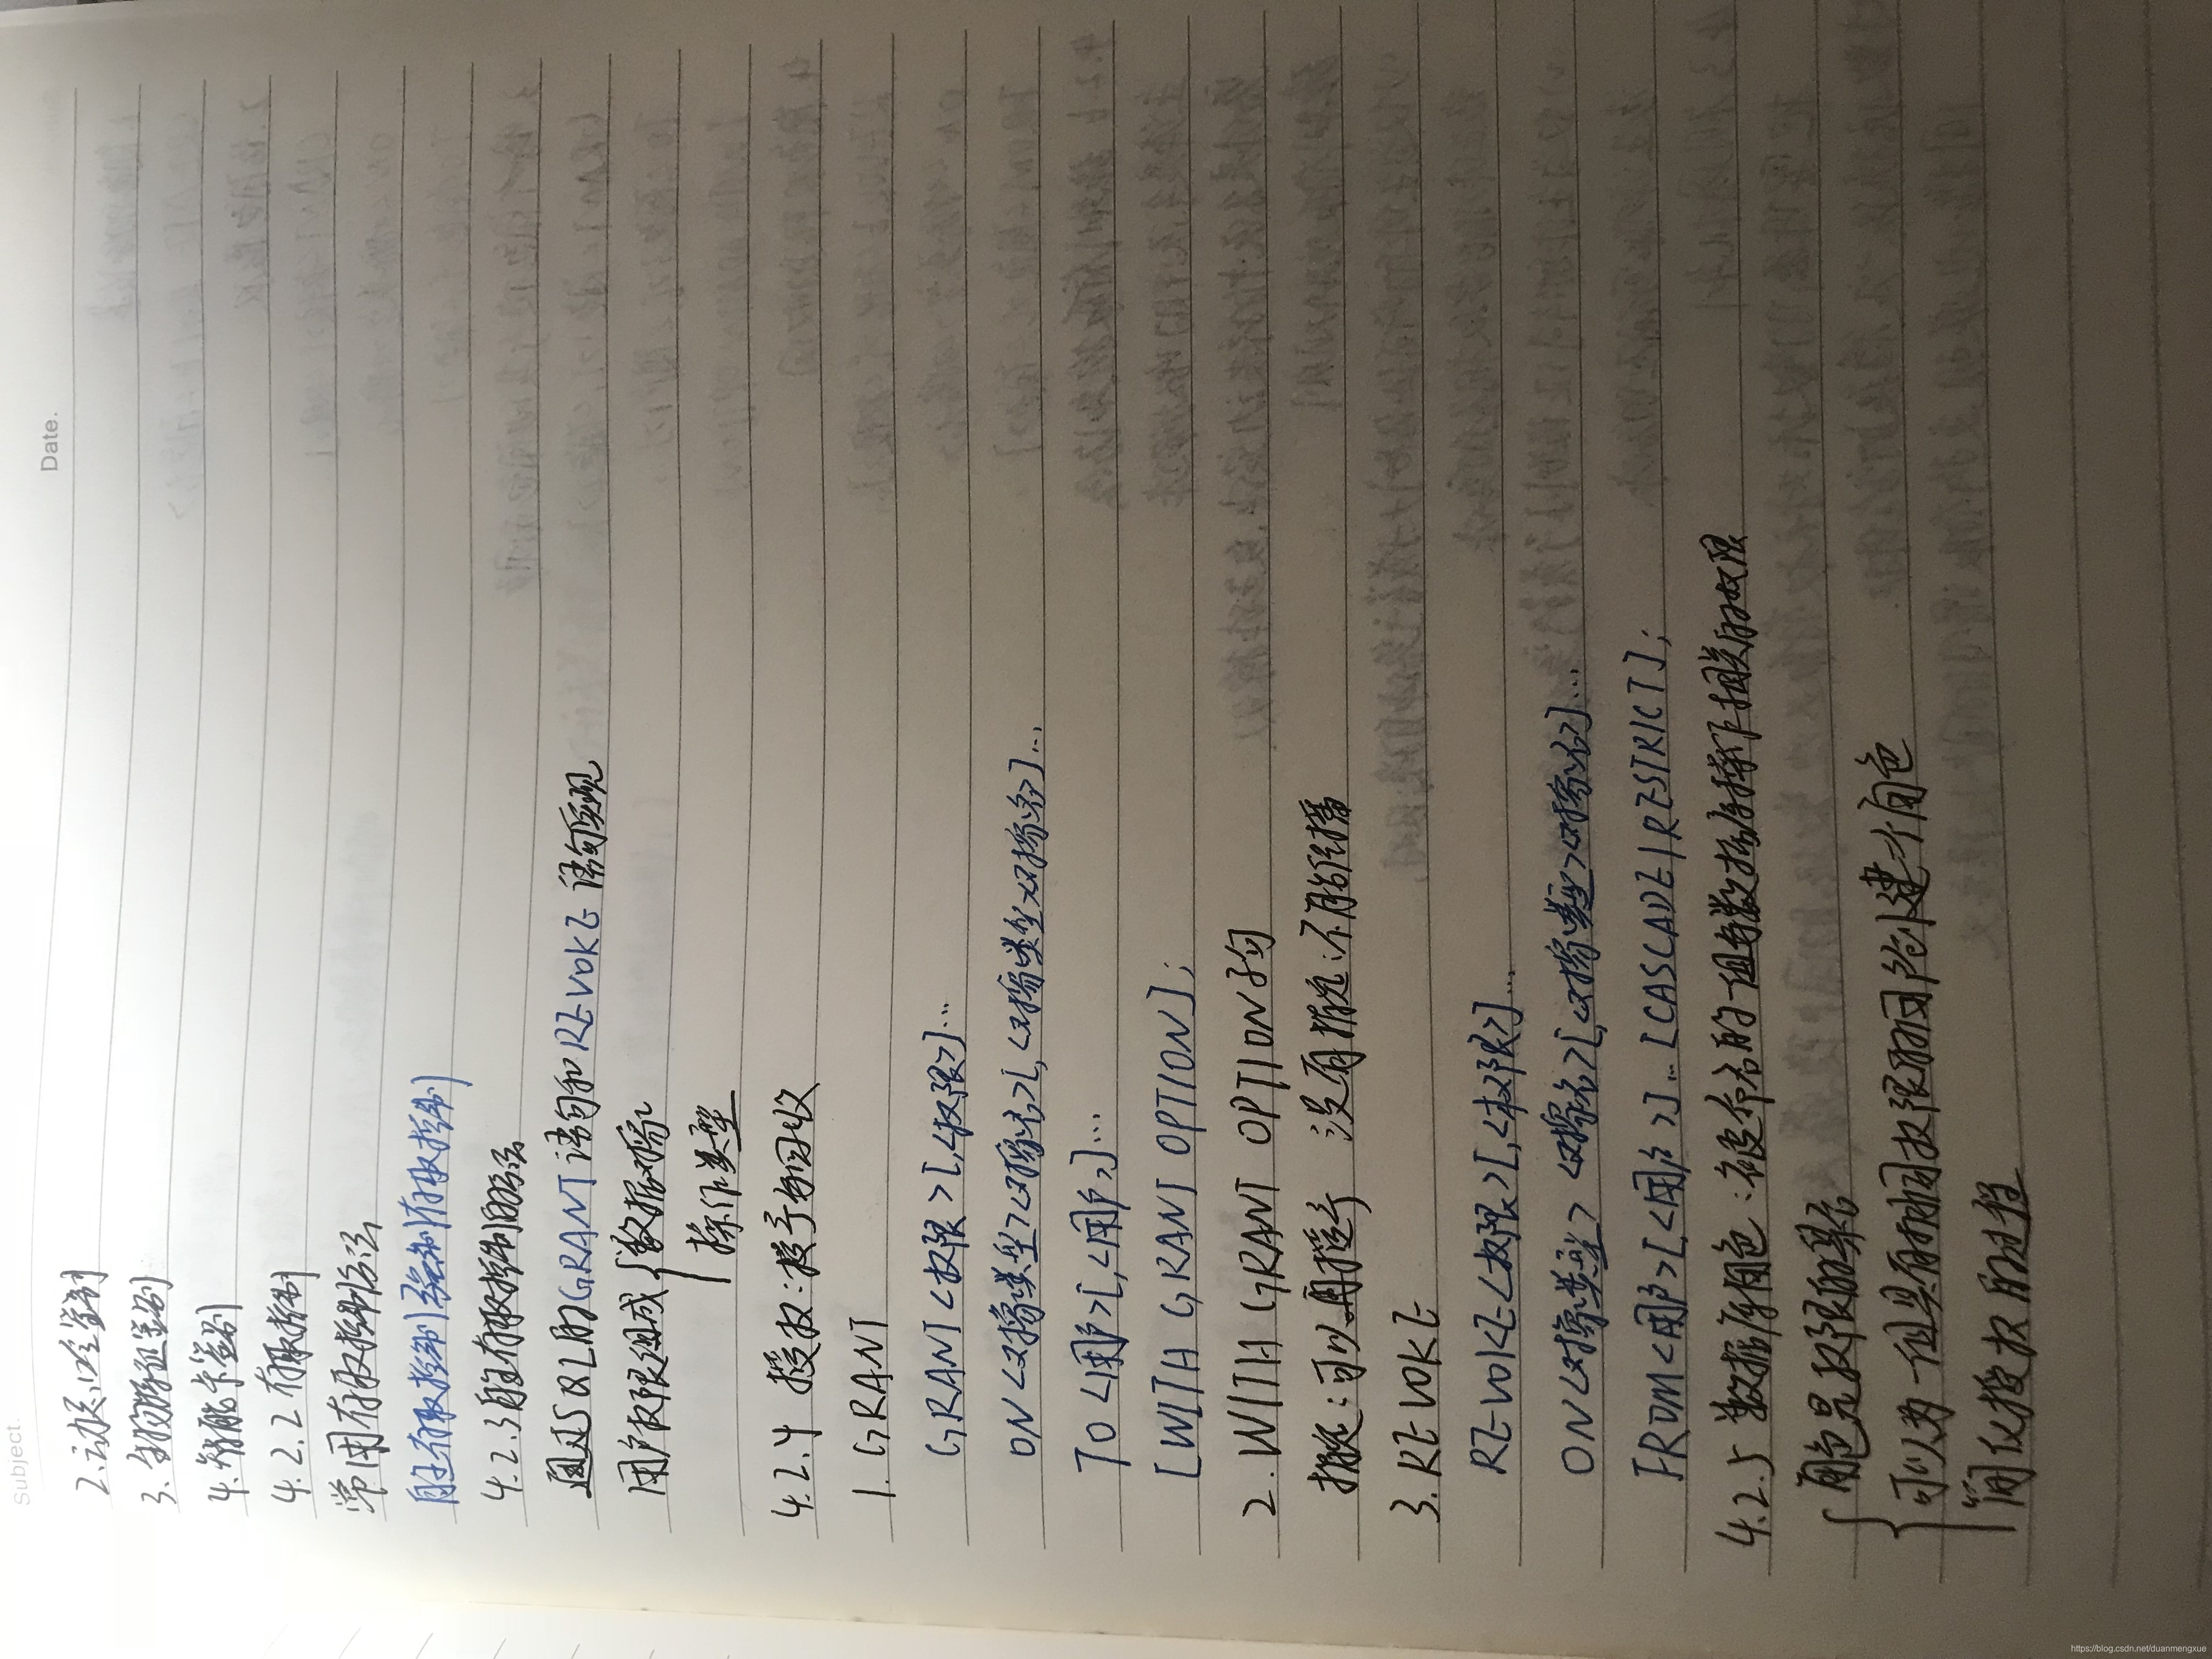 Subject.
Date.
2.动态口令鉴别
3.生物特征鉴别
4.智能卡鉴别
4.2.2 存取控制
常用存取控制方法
自主存取控制 强制存取控制
4.2.3 自主存取控制方法
通过SQL的GRANT语句和REVOKE语句实现
用户权限组成 { 数据对象
操作类型
4.2.4 授权:授予与回收
1. GRANT
GRANT <权限>[,<权限>]...
ON <对象类型><对象名>[,<对象类型><对象名>]...
TO <用户>[,<用户>]...
[WITH GRANT OPTION];
2. WITH GRANT OPTION子句
指定:可以再授予 没有指定:不能传播
3. REVOKE
REVOKE <权限>[,<权限>]...
ON <对象类型> <对象名>[,<对象类型><对象名>]...
FROM <用户>[,<用户>]... [CASCADE|RESTRICT];
4.2.5 数据库角色:被命名的一组与数据库操作相关的权限
{ 角色是权限的集合
可以为一组具有相同权限的用户创建一个角色
简化授权的过程
https://blog.csdn.net/duanmengxue